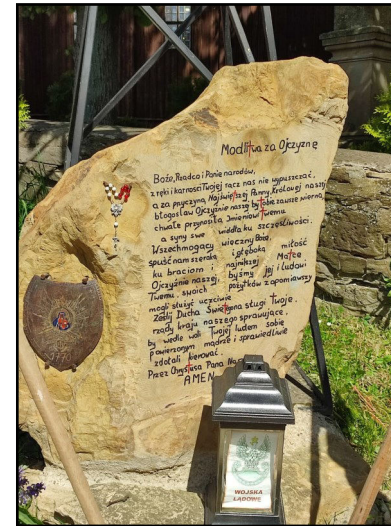 Modlitwa za Ojczyznę
Boże, Rządco i Panie narodów,
z ręki i karności Twojej racz nas nie wypuszczać,
a za przyczyną Najświętszej Panny, Królowej naszej
błogosław Ojczyźnie naszej by Tobie zawsze wierna,
chwałę przynosiła Imieniowi Twemu
a syny swe wiodła ku szczęśliwości.
Wszechmogący wieczny Boże,
spuść nam szeroką i głęboką miłość
ku braciom i najmilszej Matce
Ojczyźnie naszej byśmy jej i ludowi
Twemu, swoich pożytków zapomniawszy
mogli służyć uczciwie
Ześlij Ducha Świętego na sługi Twoje,
rządy kraju naszego sprawujące,
by wedle woli Twojej ludem sobie
powierzonym mądrze i sprawiedliwie
zdołali kierować.
Przez Chrystusa Pana
AMEN
WOJSKA
LĄDOWE